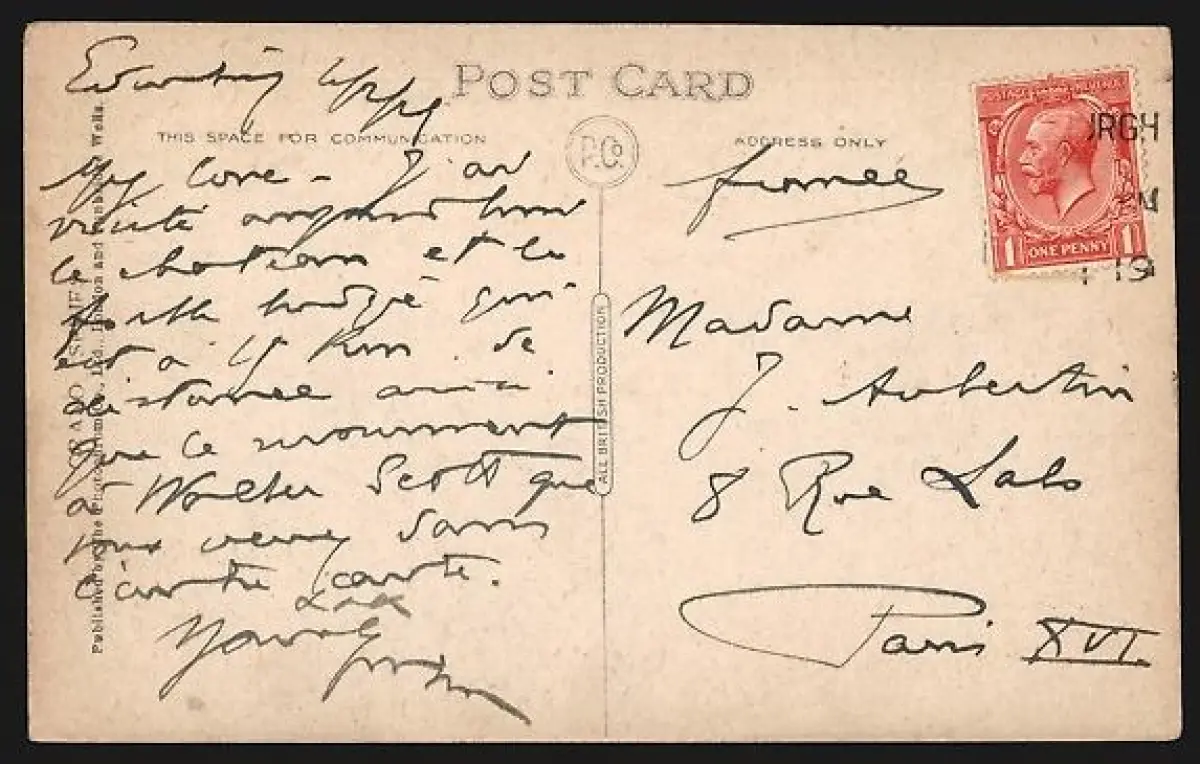 POST CARD
THIS SPACE FOR COMMUNICATION
ADDRESS ONLY
P. Co.
ALL BRITISH PRODUCTION
My love - J'ai
visité aujourd'hui
le château et le
Forth bridge qui
est à 15 Km. de
distance ainsi
que le monument
à Walter Scott que
vous verrez dans
l'autre carte.
France
Madame
J. Aubertin
8 Rue Lalo
Paris XVI.
POSTAGE REVENUE
1 ONE PENNY 1
URGH
19
Published by the Photochrom Co., Ltd., London and Tunbridge Wells.